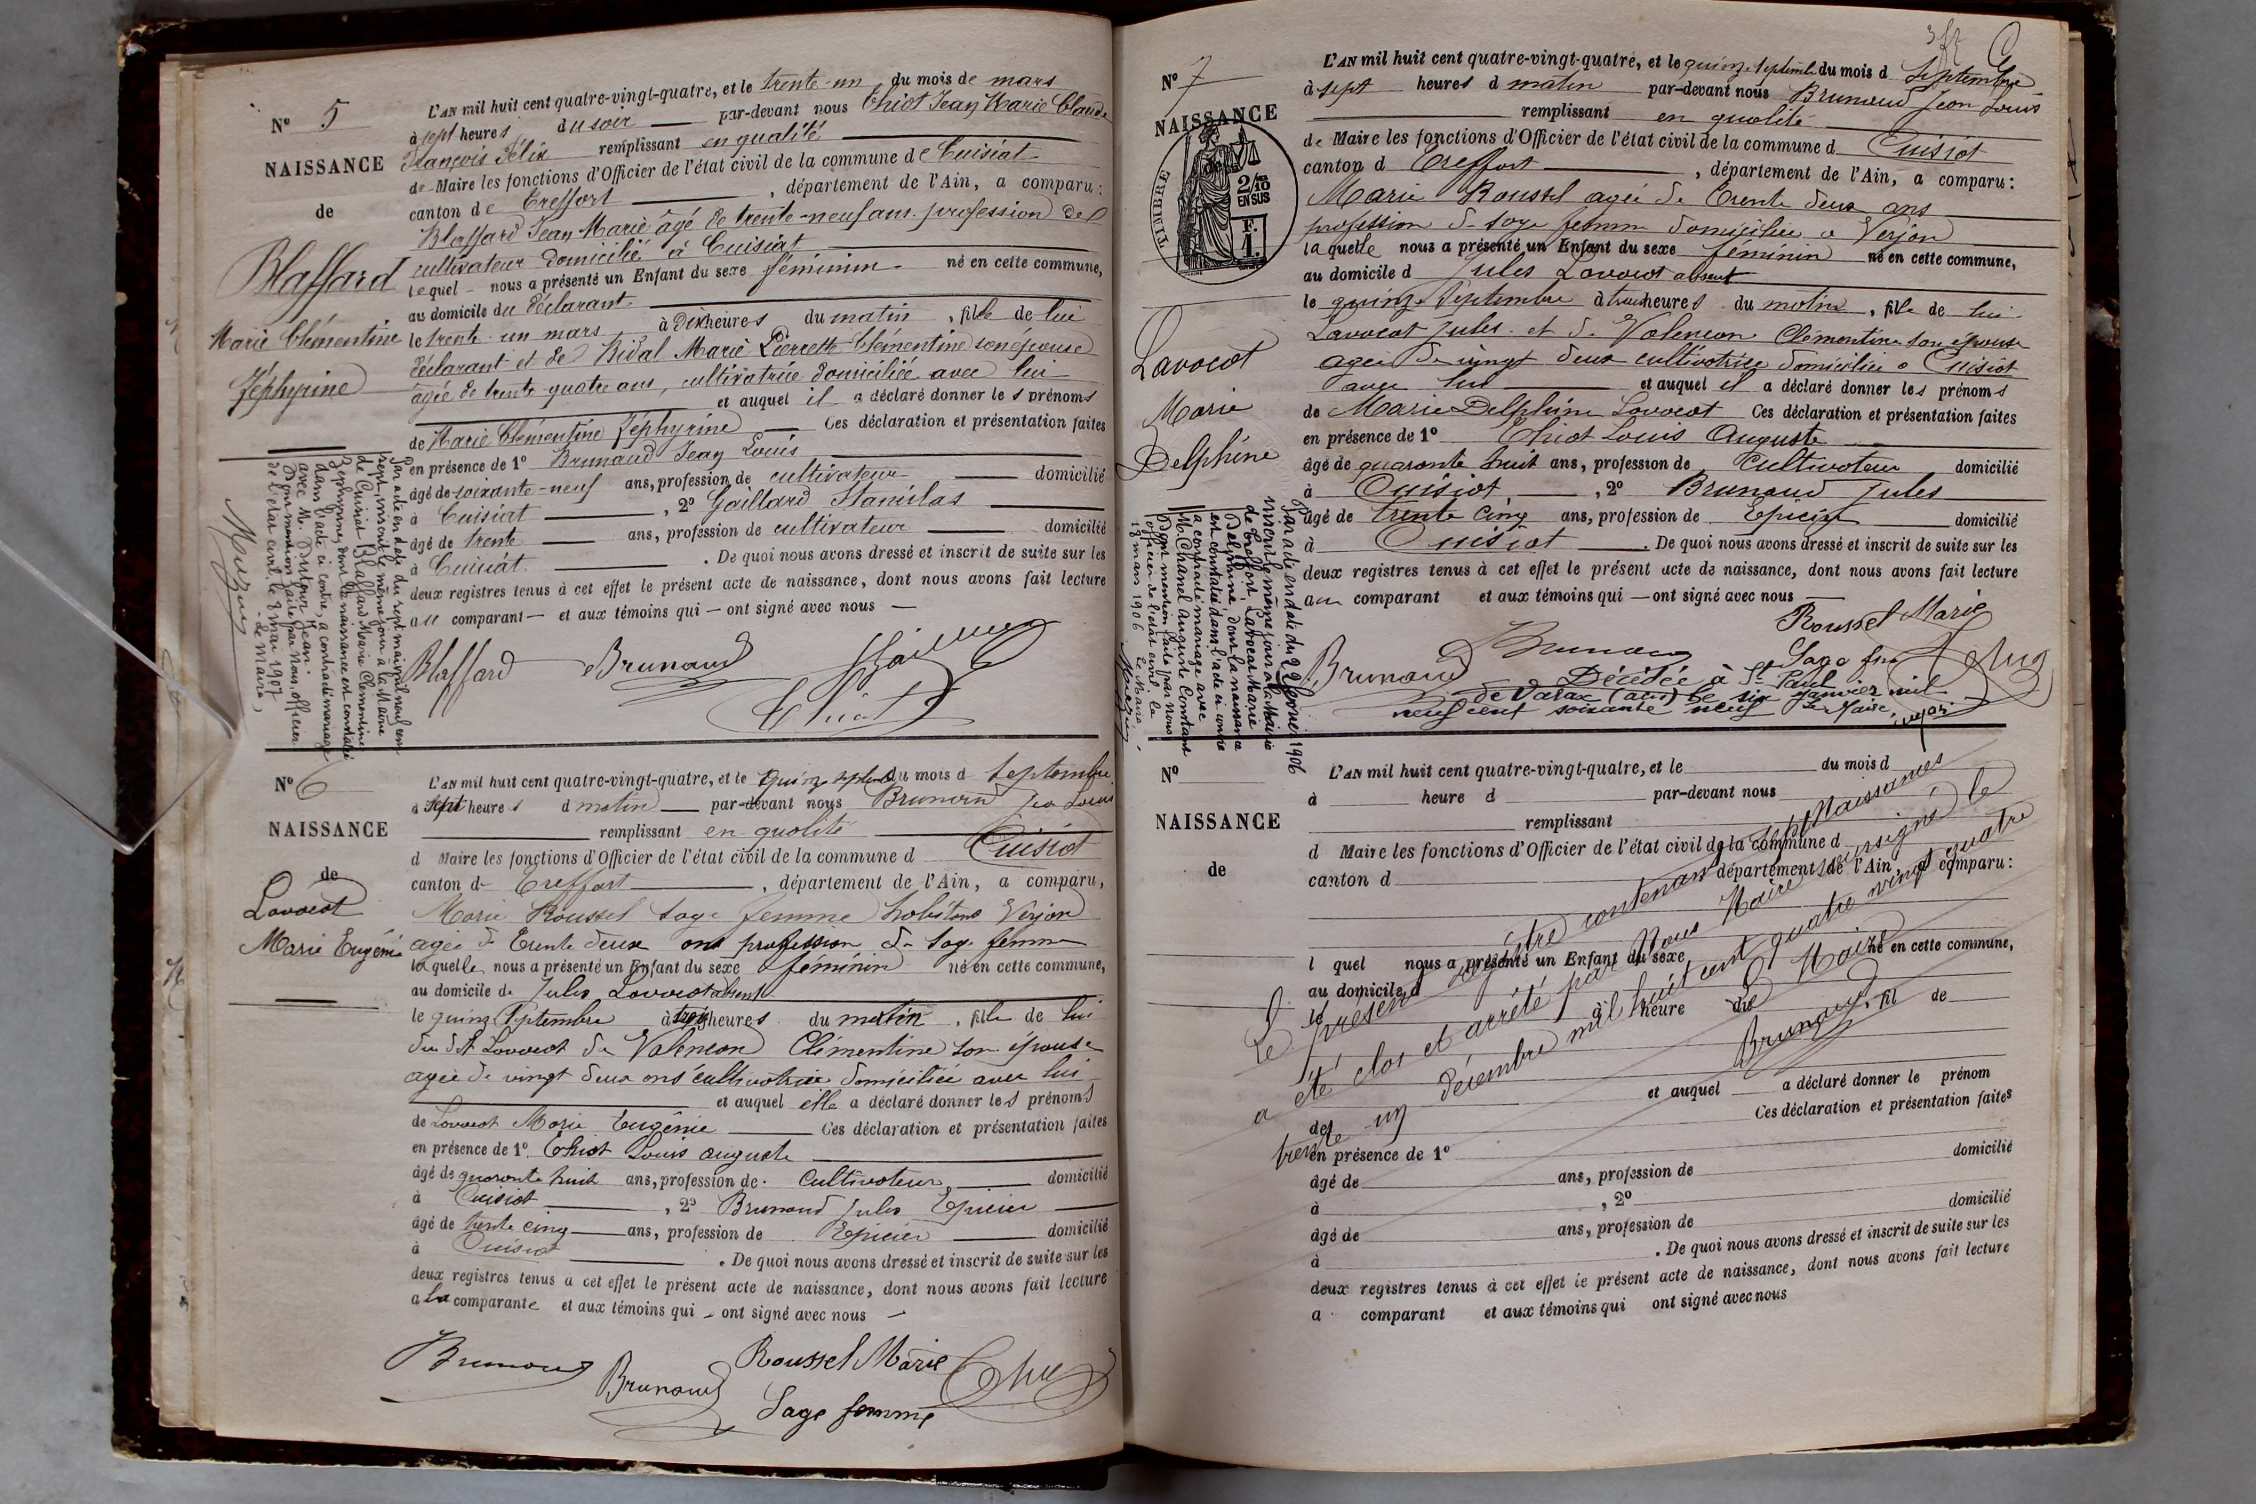 L'AN mil huit cent quatre-vingt-quatre, et le trente-un du mois de mars
à sept heures du soir par-devant nous Thiot Jean Marie Claude
François Félix remplissant en qualité
de Maire les fonctions d'Officier de l'état civil de la commune de Cuisiat
canton de Treffort, département de l'Ain, a comparu:
Blaffard Jean Marie âgé de trente-neuf ans profession de
cultivateur domicilié à Cuisiat
lequel nous a présenté un Enfant du sexe féminin né en cette commune,
au domicile du déclarant
le trente-un mars à dix heures du matin, fille de lui
déclarant et de Vidal Marie Pierrette Clémentine son épouse
agée de trente quatre ans, cultivatrice domiciliée avec lui
et auquel il a déclaré donner les prénoms
de Marie Clémentine Zéphyrine Ces déclaration et présentation faites
en présence de 1° Brunaud Jean Louis
âgé de soixante-neuf ans, profession de cultivateur domicilié
à Cuisiat, 2° Gaillard Stanislas
âgé de trente ans, profession de cultivateur domicilié
à Cuisiat. De quoi nous avons dressé et inscrit de suite sur les
deux registres tenus à cet effet le présent acte de naissance, dont nous avons fait lecture
au comparant et aux témoins qui ont signé avec nous
N° 5
NAISSANCE
de
Blaffard
Marie Clémentine
Zéphyrine
Par acte en date du sept mai mil neuf cent
sept, inscrit le même jour à la Mairie
de Cuisiat Blaffard Marie Clémentine
Zéphyrine, dont la naissance est constatée
dans l'acte ci contre, a contracté mariage
avec M. Dufour Jean.
Dont mention faite par Nous, officier
de l'état civil, le 8 mai 1907
Le Maire,
Blaffard Brunaud Gaillard
Thiot
N° 6
NAISSANCE
de
Lavocat
Marie Eugénie
L'AN mil huit cent quatre-vingt-quatre, et le quinze septembre du mois d septembre
à sept heures d matin par-devant nous Brunaud Jean Louis
remplissant en qualité
d Maire les fonctions d'Officier de l'état civil de la commune d Cuisiat
canton de Treffort, département de l'Ain, a comparu,
Marie Roussel sage femme habitant Verjon
agée de trente deux ans profession de sage femme
laquelle nous a présenté un Enfant du sexe féminin né en cette commune,
au domicile de Jules Lavocat absent
le quinze septembre à trois heures du matin, fille de lui
du dit Lavocat de Valencon Clémentine son épouse
agée de vingt deux ans cultivatrice domiciliée avec lui
et auquel elle a déclaré donner les prénoms
de Lavocat Marie Eugénie Ces déclaration et présentation faites
en présence de 1° Thiot Louis auguste
âgé de quarante huit ans, profession de cultivateur domicilié
à Cuisiat, 2° Brunaud Jules Epicier
âgé de trente cinq ans, profession de Epicier domicilié
à Cuisiat. De quoi nous avons dressé et inscrit de suite sur les
deux registres tenus à cet effet le présent acte de naissance, dont nous avons fait lecture
a la comparante et aux témoins qui ont signé avec nous
Brunaud Brunaud Roussel Marie
Sage femme
N° 7
NAISSANCE
de
TIMBRE
2/10
EN SUS
F.
1.
Lavocat
Marie
Delphine
L'AN mil huit cent quatre-vingt-quatre, et le quinze septembre du mois d septembre
à sept heures d matin par-devant nous Brunaud Jean Louis
remplissant en qualité
de Maire les fonctions d'Officier de l'état civil de la commune d Cuisiat
canton d Treffort, département de l'Ain, a comparu:
Marie Roussel agée de trente deux ans
profession de sage femme domiciliée à Verjon
laquelle nous a présenté un Enfant du sexe féminin né en cette commune,
au domicile d Jules Lavocat absent
le quinze septembre à trois heures du matin, fille de lui
Lavocat Jules et de Valencon Clémentine son épouse
agée de vingt deux cultivatrice domiciliée à Cuisiat
avec lui et auquel il a déclaré donner les prénoms
de Marie Delphine Lavocat Ces déclaration et présentation faites
en présence de 1° Thiot Louis Auguste
âgé de quarante huit ans, profession de Cultivateur domicilié
à Cuisiat, 2° Brunaud Jules
âgé de trente cinq ans, profession de Epicier domicilié
à Cuisiat. De quoi nous avons dressé et inscrit de suite sur les
deux registres tenus à cet effet le présent acte de naissance, dont nous avons fait lecture
au comparant et aux témoins qui ont signé avec nous
Par acte en date du 22 février 1906
inscrit le même jour à la Mairie
de Treffort, Lavocat Marie
Delphine, dont la naissance
est constatée dans l'acte ci contre
a contracté mariage avec
M. Chanel Auguste Constant
Dont mention faite par nous
officier de l'état civil le
18 mars 1906 Le Maire,
Roussel Marie
Sage fem
Brunaud Brunaud
Décédée à St Paul
de Varax (Ain) le six Janvier mil
neuf cent soixante neuf Le Maire,
N°
NAISSANCE
de
L'AN mil huit cent quatre-vingt-quatre, et le du mois d
à heure d par-devant nous
remplissant
d Maire les fonctions d'Officier de l'état civil de la commune d
canton d département de l'Ain, a comparu:
l quel nous a présenté un Enfant du sexe né en cette commune,
au domicile d
le à heure du, fil de
et auquel a déclaré donner le prénom
de Ces déclaration et présentation faites
en présence de 1°
âgé de ans, profession de domicilié
à, 2°
âgé de ans, profession de domicilié
à. De quoi nous avons dressé et inscrit de suite sur les
deux registres tenus à cet effet le présent acte de naissance, dont nous avons fait lecture
a comparant et aux témoins qui ont signé avec nous
Le présent registre contenant sept Naissances
a été clos et arrêté par Nous Maire soussigné le
trente un décembre mil huit cent quatre vingt quatre
Le Maire
Brunaud